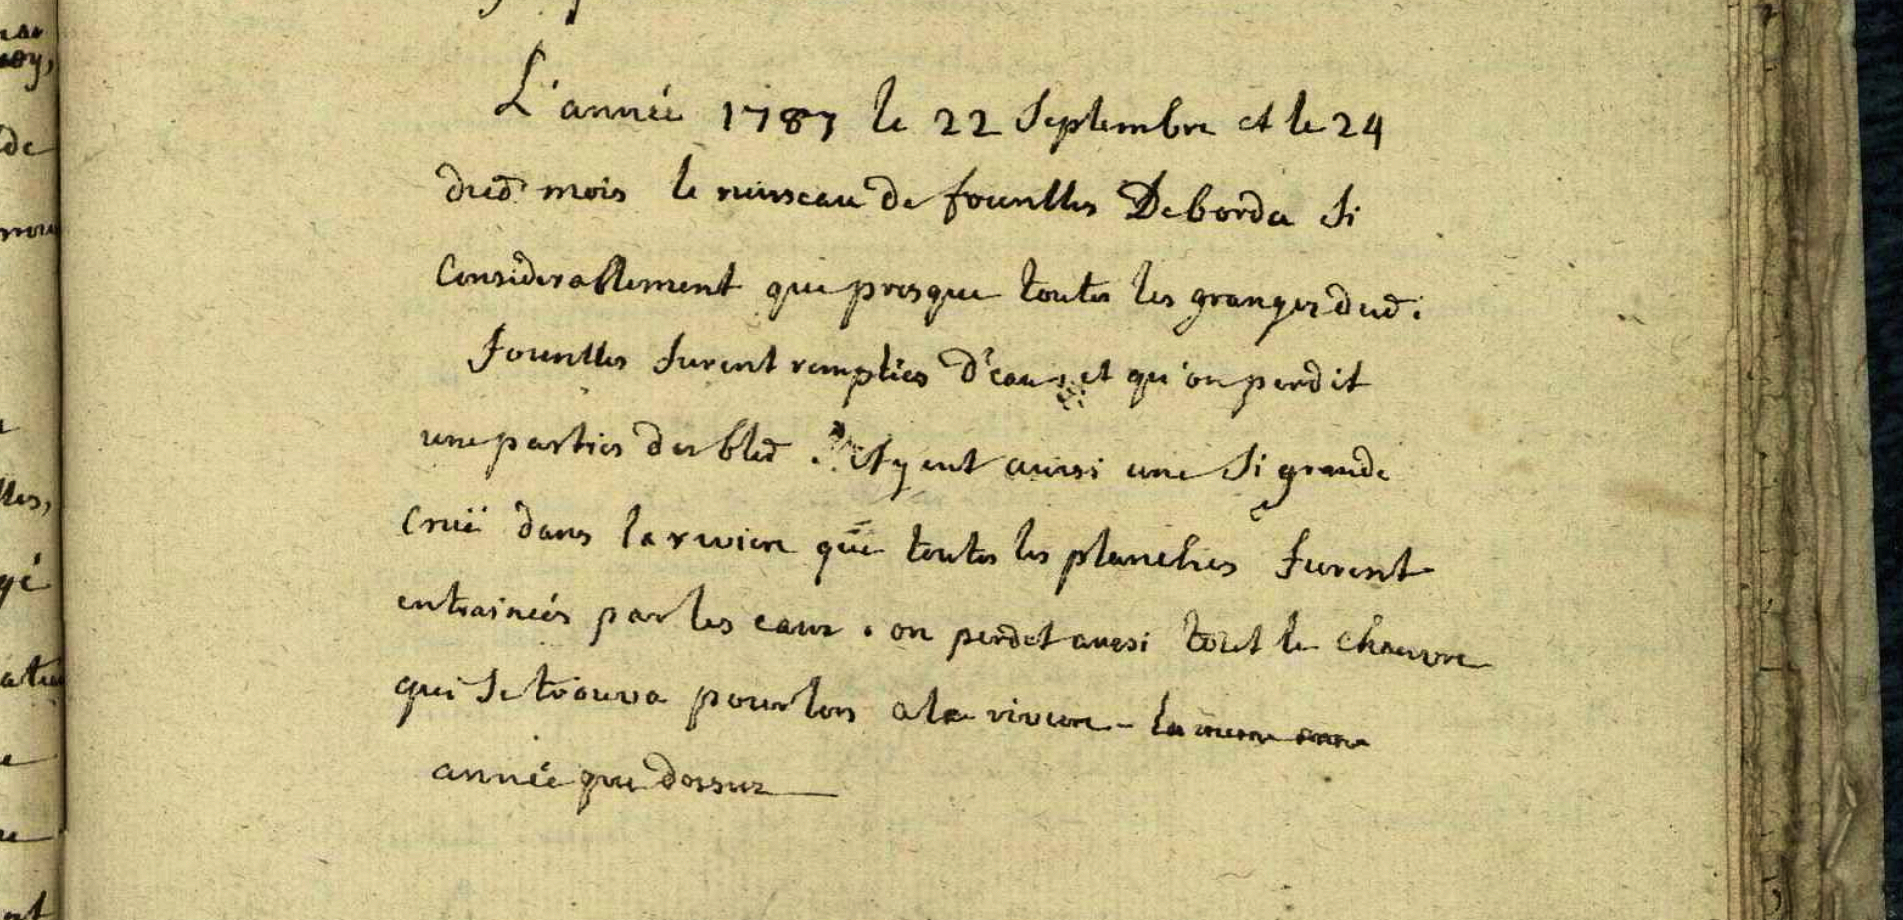 L'année 1787 le 22 Septembre et le 24
dud mois le ruisseau de fourilles Deborda si
Considerablement que presque toutes les granges dud.
fourilles furent remplies d'eau, et qu'on perdit
une parties des bled. et y eut aussi une si grande
Cruë dans la riviere que toutes les planches furent
entrainées par les eaux. on perdet aussi tout le chanvre
qui se trouva pour lors a la riviere - la meme
année que dessus